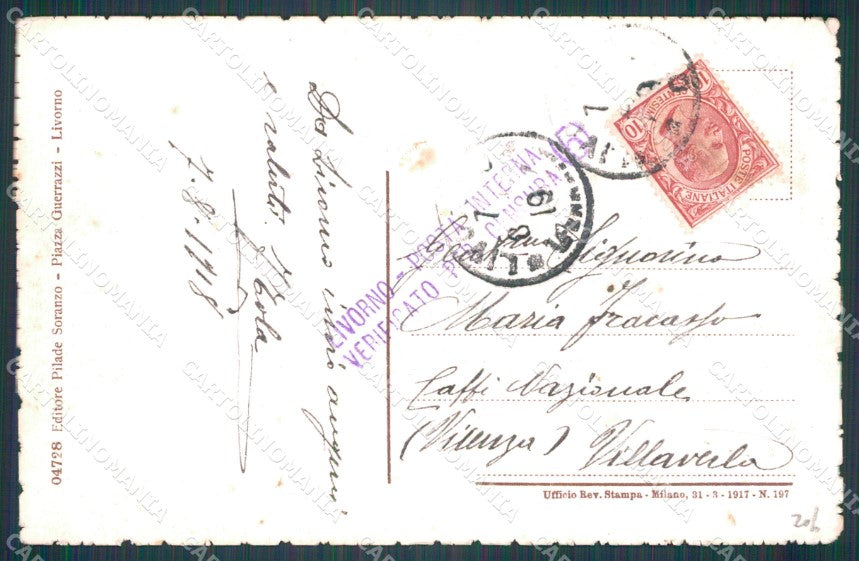 04728 Editore Pilade Soranzo - Piazza Guerrazzi - Livorno
Da Livorno invio auguri
e saluti.
7-8-1918
LIVORNO - POSTA INTERNA
VERIFICATO PER CENSURA
POSTE ITALIANE
10
Signorina
Maria Fracasso
Caffi Nazionale
(Vicenza) Villaverla
Ufficio Rev. Stampa - Milano, 31 - 3 - 1917 - N. 197
CARTOLINOMANIA